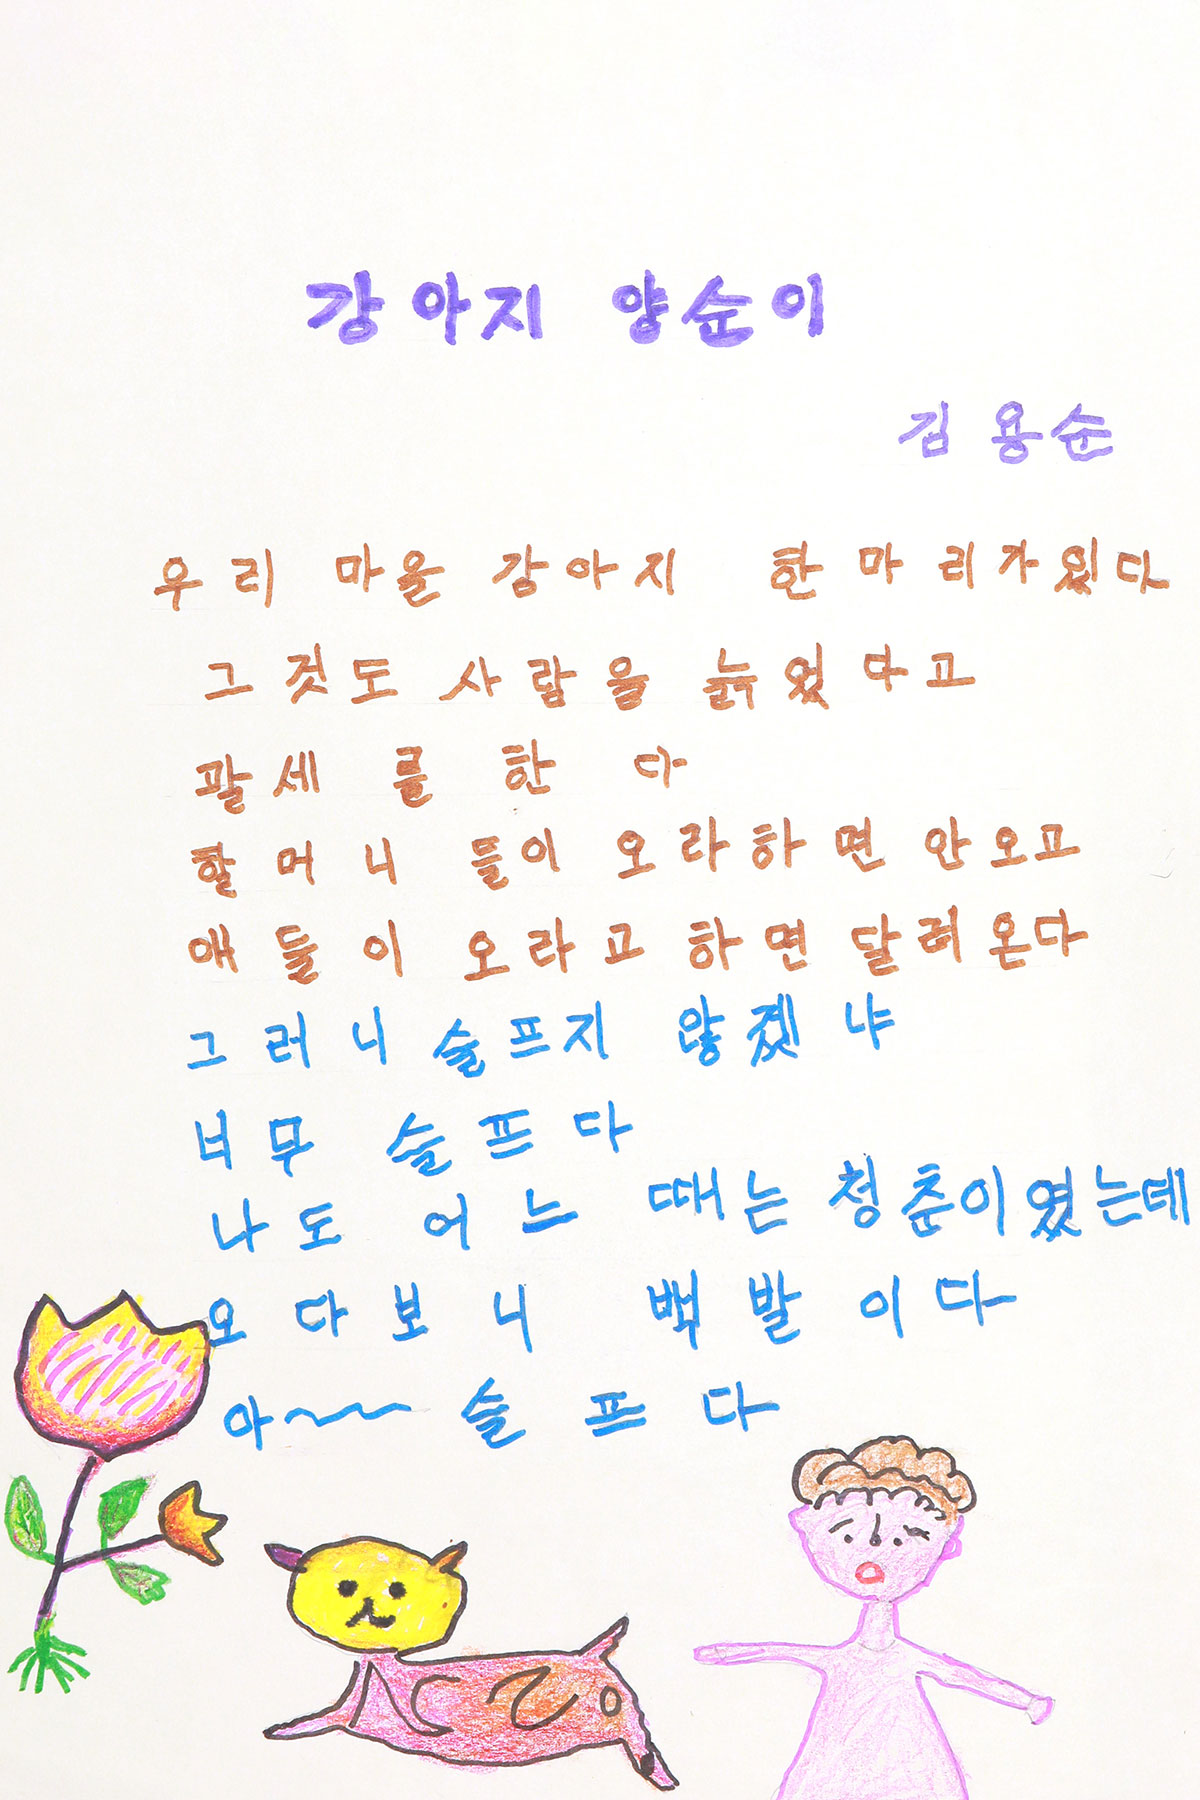 강아지 양순이
김용순
우리 마을 강아지 한 마리가있다
그것도 사람을 늙었다고
괄세를 한다
할머니들이 오라하면 안오고
애들이 오라고 하면 달려온다
그러니 슬프지 않겠냐
너무 슬프다
나도 어느 때는 청춘이였는데
오다보니 백발이다
아~~ 슬프다